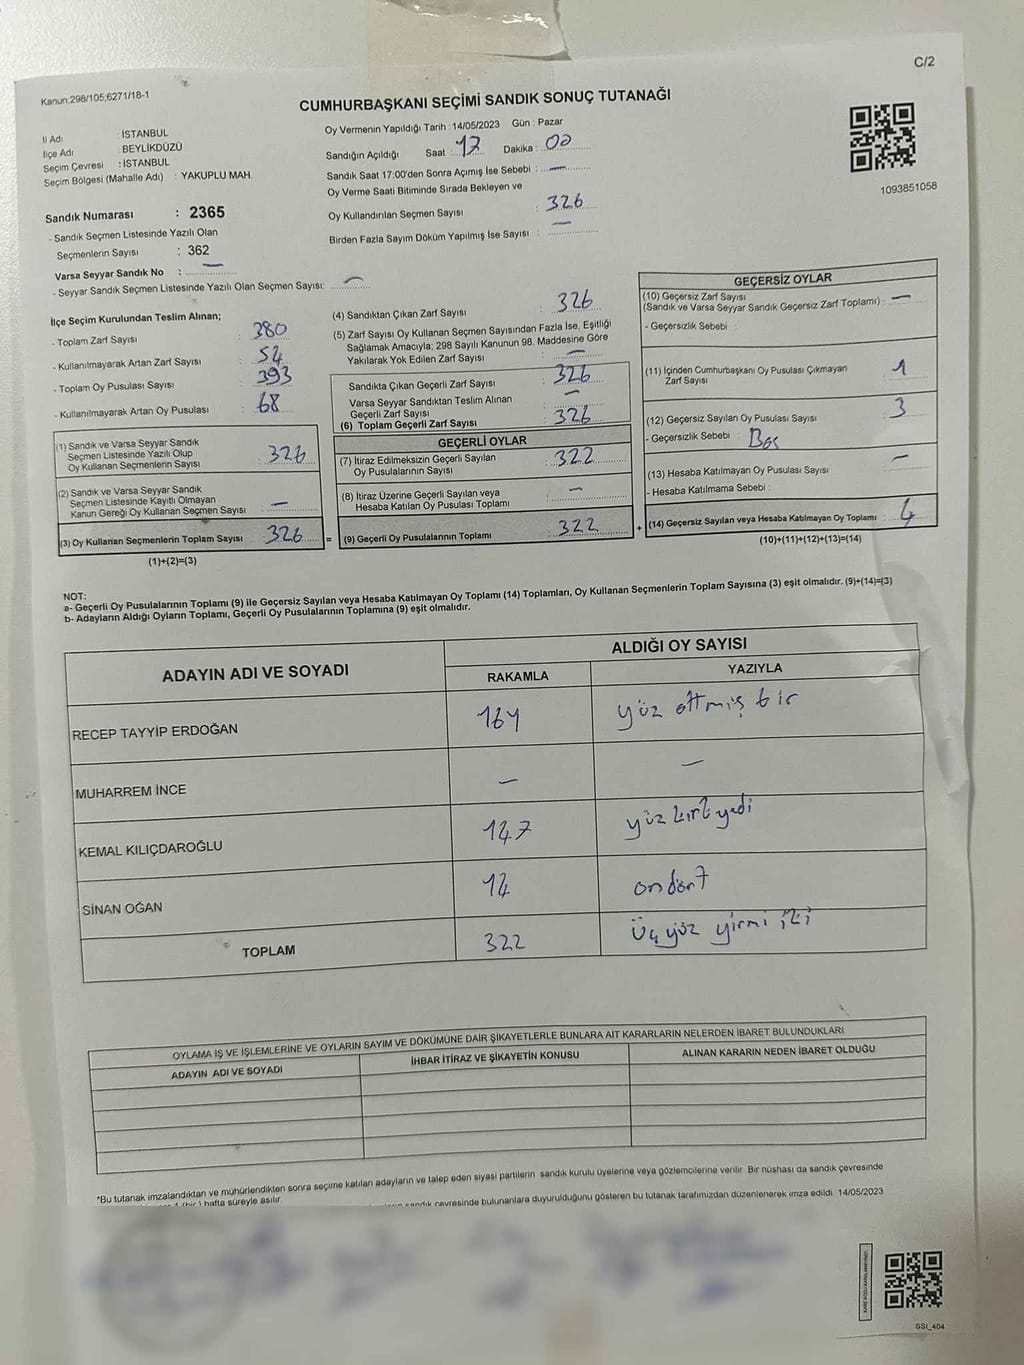 C/2
Kanun:298/105;6271/18-1
CUMHURBAŞKANI SEÇİMİ SANDIK SONUÇ TUTANAĞI
İl Adı : İSTANBUL
İlçe Adı : BEYLİKDÜZÜ
Seçim Çevresi : İSTANBUL
Seçim Bölgesi (Mahalle Adı) : YAKUPLU MAH.
Oy Vermenin Yapıldığı Tarih : 14/05/2023 Gün : Pazar
Sandığın Açıldığı Saat : 17 Dakika : 00
Sandık Saat 17:00'den Sonra Açımış İse Sebebi : —
Oy Verme Saati Bitiminde Sırada Bekleyen ve
Oy Kullandırılan Seçmen Sayısı : 326
Birden Fazla Sayım Döküm Yapılmış İse Sayısı : —
1093851058
Sandık Numarası : 2365
- Sandık Seçmen Listesinde Yazılı Olan
Seçmenlerin Sayısı : 362
Varsa Seyyar Sandık No : —
- Seyyar Sandık Seçmen Listesinde Yazılı Olan Seçmen Sayısı: —
İlçe Seçim Kurulundan Teslim Alınan;
- Toplam Zarf Sayısı : 380
- Kullanılmayarak Artan Zarf Sayısı : 54
- Toplam Oy Pusulası Sayısı : 393
- Kullanılmayarak Artan Oy Pusulası : 68
(1) Sandık ve Varsa Seyyar Sandık
Seçmen Listesinde Yazılı Olup
Oy Kullanan Seçmenlerin Sayısı : 326
(2) Sandık ve Varsa Seyyar Sandık
Seçmen Listesinde Kayıtlı Olmayan
Kanun Gereği Oy Kullanan Seçmen Sayısı : —
(3) Oy Kullanan Seçmenlerin Toplam Sayısı : 326 =
(1)+(2)=(3)
(4) Sandıktan Çıkan Zarf Sayısı : 326
(5) Zarf Sayısı Oy Kullanan Seçmen Sayısından Fazla İse, Eşitliği
Sağlamak Amacıyla; 298 Sayılı Kanunun 98. Maddesine Göre
Yakılarak Yok Edilen Zarf Sayısı : —
Sandıkta Çıkan Geçerli Zarf Sayısı : 326
Varsa Seyyar Sandıktan Teslim Alınan
Geçerli Zarf Sayısı : —
(6) Toplam Geçerli Zarf Sayısı : 326
GEÇERLİ OYLAR
(7) İtiraz Edilmeksizin Geçerli Sayılan
Oy Pusulalarının Sayısı : 322
(8) İtiraz Üzerine Geçerli Sayılan veya
Hesaba Katılan Oy Pusulası Toplamı : —
(9) Geçerli Oy Pusulalarının Toplamı : 322 +
GEÇERSİZ OYLAR
(10) Geçersiz Zarf Sayısı
(Sandık ve Varsa Seyyar Sandık Geçersiz Zarf Toplamı) : —
- Geçersizlik Sebebi :
(11) İçinden Cumhurbaşkanı Oy Pusulası Çıkmayan
Zarf Sayısı : 1
(12) Geçersiz Sayılan Oy Pusulası Sayısı : 3
- Geçersizlik Sebebi : Boş
(13) Hesaba Katılmayan Oy Pusulası Sayısı : —
- Hesaba Katılmama Sebebi :
(14) Geçersiz Sayılan veya Hesaba Katılmayan Oy Toplamı : 4
(10)+(11)+(12)+(13)=(14)
NOT:
a- Geçerli Oy Pusulalarının Toplamı (9) ile Geçersiz Sayılan veya Hesaba Katılmayan Oy Toplamı (14) Toplamları, Oy Kullanan Seçmenlerin Toplam Sayısına (3) eşit olmalıdır. (9)+(14)=(3)
b- Adayların Aldığı Oyların Toplamı, Geçerli Oy Pusulalarının Toplamına (9) eşit olmalıdır.
ADAYIN ADI VE SOYADI
ALDIĞI OY SAYISI
RAKAMLA YAZIYLA
RECEP TAYYİP ERDOĞAN 161 yüz altmış bir
MUHARREM İNCE — —
KEMAL KILIÇDAROĞLU 147 yüz kırk yedi
SİNAN OĞAN 14 on dört
TOPLAM 322 üç yüz yirmi iki
OYLAMA İŞ VE İŞLEMLERİNE VE OYLARIN SAYIM VE DÖKÜMÜNE DAİR ŞİKAYETLERLE BUNLARA AİT KARARLARIN NELERDEN İBARET BULUNDUKLARI
ADAYIN ADI VE SOYADI İHBAR İTİRAZ VE ŞİKAYETİN KONUSU ALINAN KARARIN NEDEN İBARET OLDUĞU
*Bu tutanak imzalandıktan ve mühürlendikten sonra seçime katılan adayların ve talep eden siyasi partilerin sandık kurulu üyelerine veya gözlemcilerine verilir. Bir nüshası da sandık çevresinde
1 (bir) hafta süreyle asılır.
sandık çevresinde bulunanlara duyurulduğunu gösteren bu tutanak tarafımızdan düzenlenerek imza edildi. 14/05/2023
SSİ_404